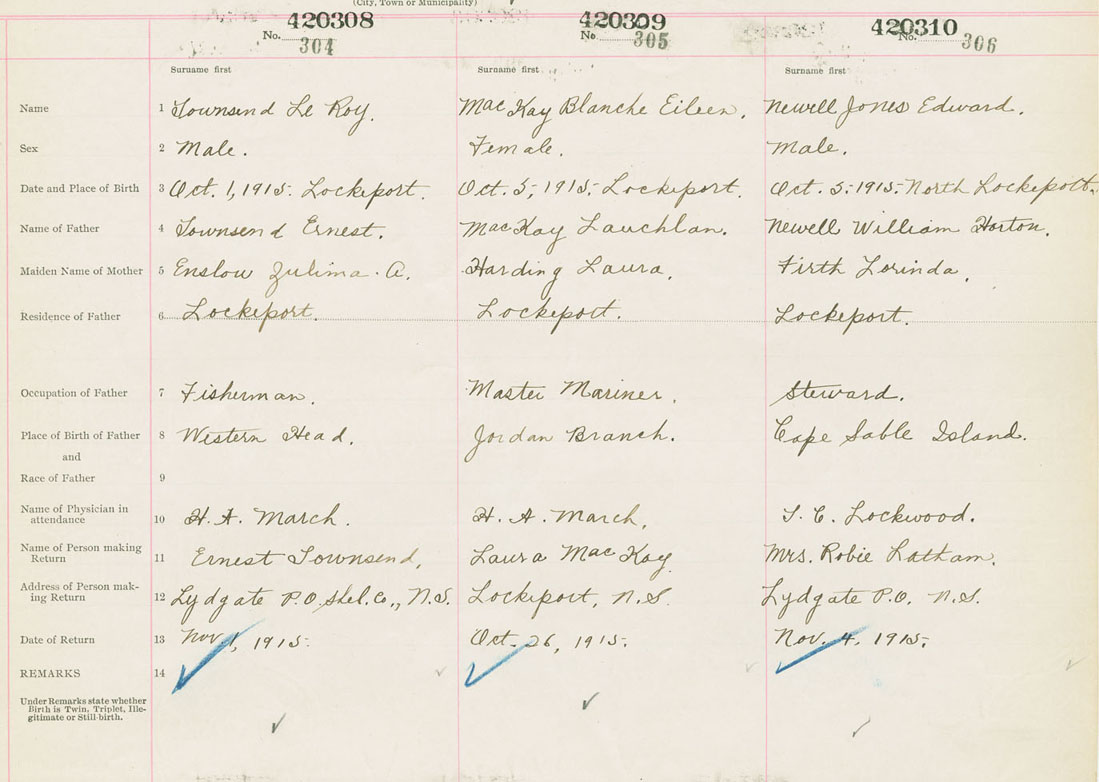 (City, Town or Municipality)
420308 420309 420310
No. 304 No 305 No. 306
Surname first Surname first Surname first
Name 1 Townsend Le Roy. MacKay Blanche Eileen. Newell Jones Edward.
Sex 2 Male. Female. Male.
Date and Place of Birth 3 Oct. 1, 1915. Lockeport. Oct. 5, 1915, Lockeport. Oct. 5, 1915, North Lockeport.
Name of Father 4 Townsend Ernest. MacKay Lauchlan. Newell William Horton.
Maiden Name of Mother 5 Enslow Zulima. A. Harding Laura. Firth Lorinda.
Residence of Father 6 Lockeport. Lockeport. Lockeport.
Occupation of Father 7 Fisherman. Master Mariner. Steward.
Place of Birth of Father 8 Western Head. Jordan Branch. Cape Sable Island.
and
Race of Father 9
Name of Physician in
attendance 10 H. A. March. H. A. March. T. C. Lockwood.
Name of Person making
Return 11 Ernest Townsend, Laura MacKay Mrs. Robie Latham.
Address of Person mak-
ing Return 12 Lydgate P.O. Shel. Co., N.S. Lockeport, N.S. Lydgate P.O. N.S.
Date of Return 13 Nov. 1, 1915. Oct. 26, 1915. Nov. 4, 1915.
REMARKS 14
Under Remarks state whether
Birth is Twin, Triplet, Ille-
gitimate or Still-birth.